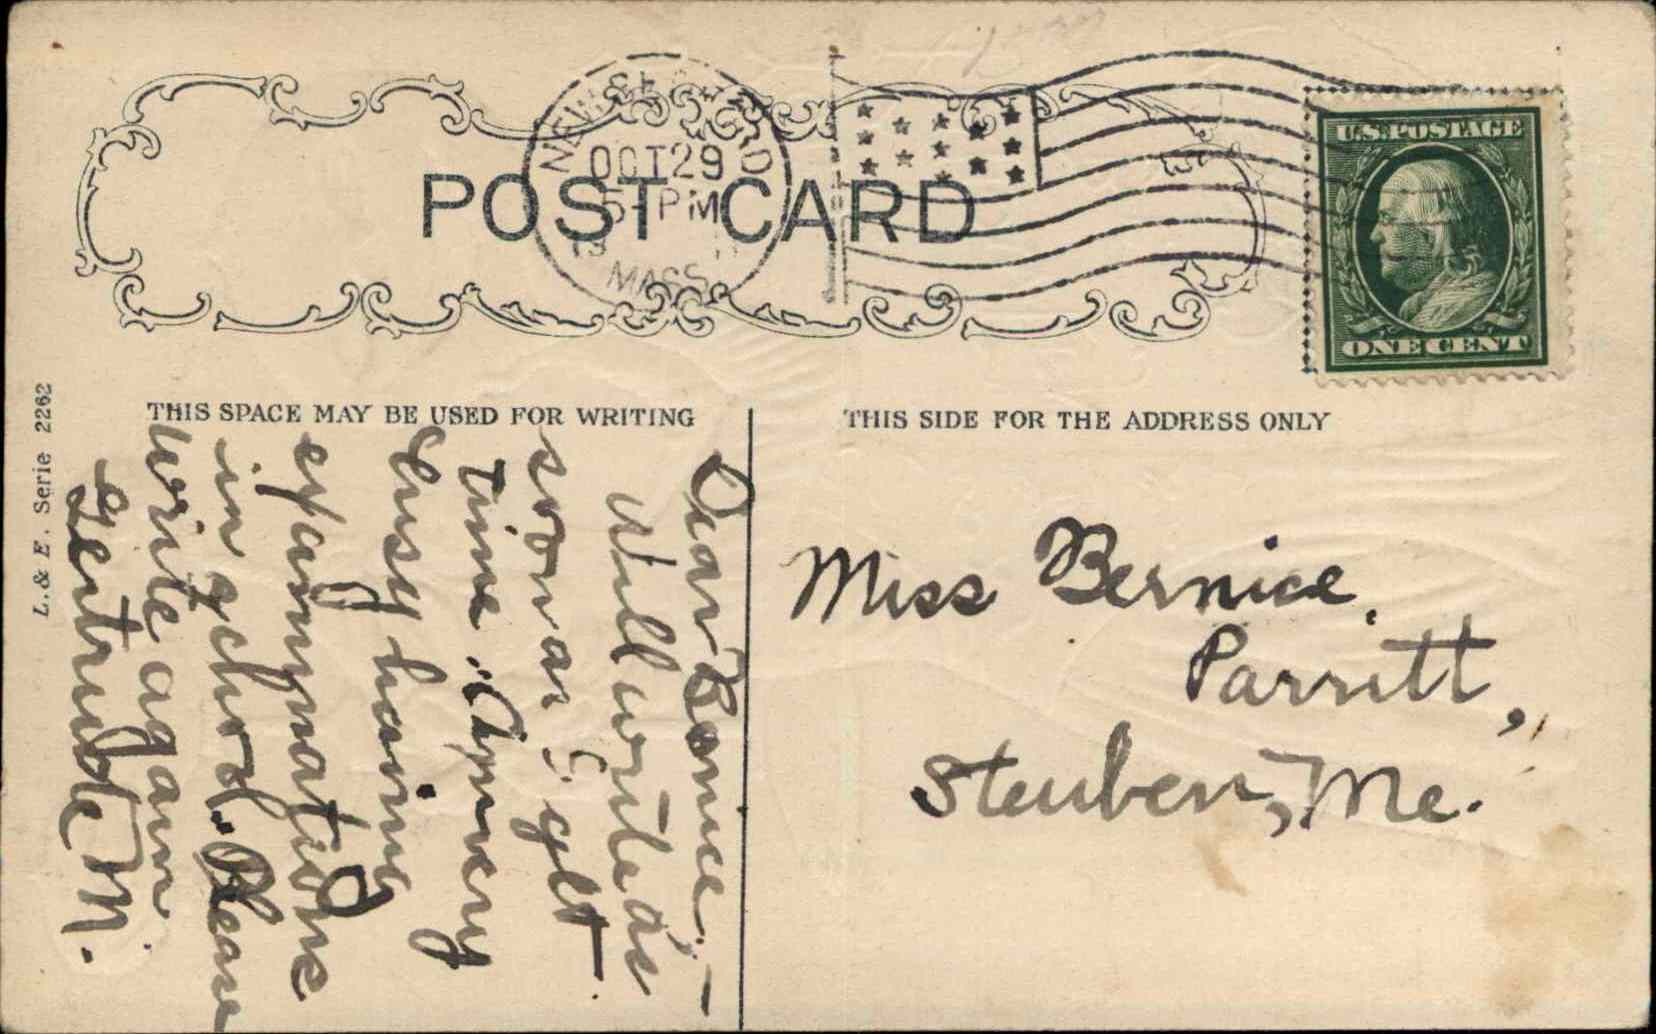 NEW BEDFORD
OCT 29
5-PM
MASS.
POST CARD
U.S. POSTAGE
ONE CENT
THIS SPACE MAY BE USED FOR WRITING
THIS SIDE FOR THE ADDRESS ONLY
L. & E. Serie 2262
Dear Bernice,—
Will write as
soon as I get
time. Am very
busy having
examinations
in school. Please
write again
Gertrude M.
Miss Bernice
Parritt,
Steuben, Me.